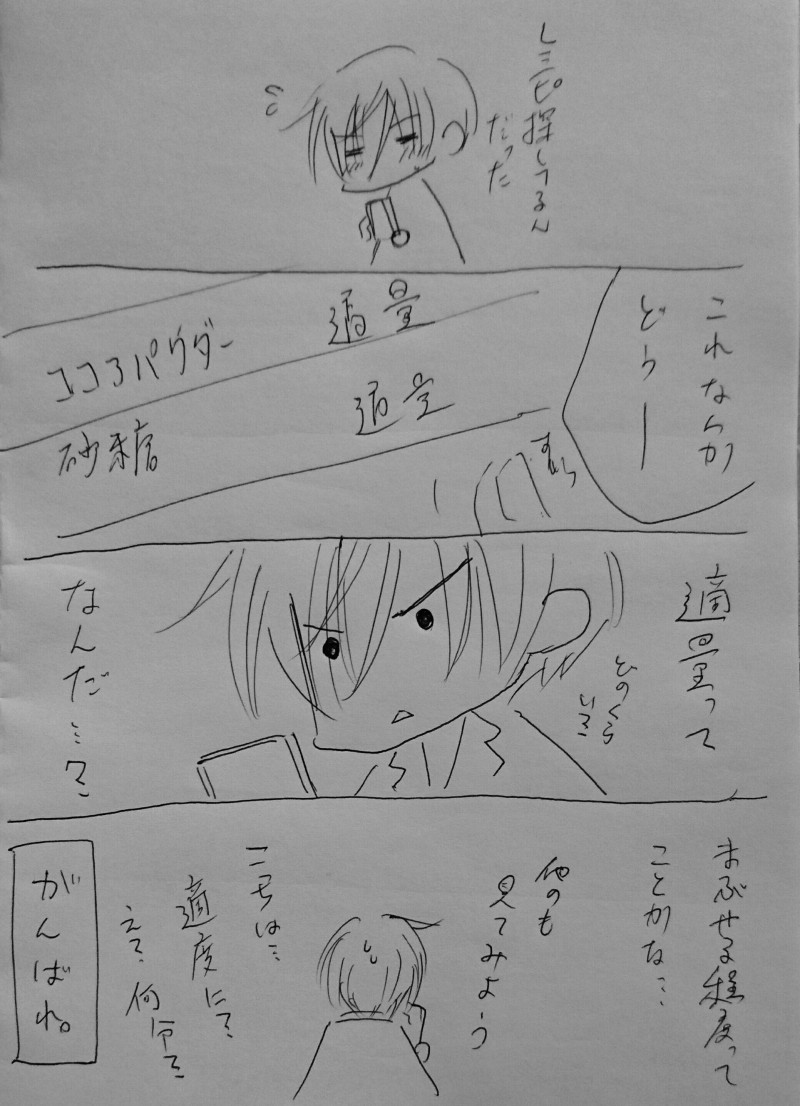 レシピ探してるん
だった
これならか
どうー
ココアパウダー 適量
砂糖 適量
適量って
どのくら
い?
なんだ…?
まぶせる程度って
ことかな…
他のも
見てみよう
こっちは…
適度に?
え? 何分?
がんばれ。